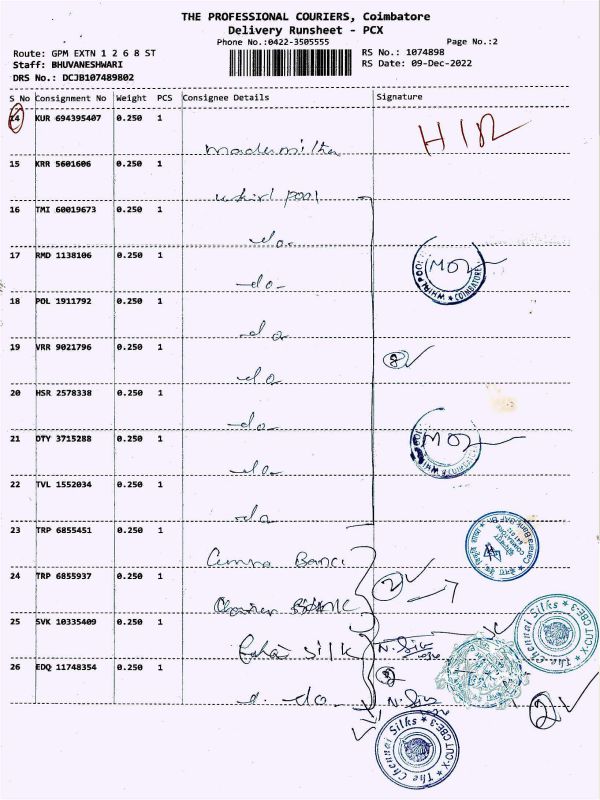 THE PROFESSIONAL COURIERS, Coimbatore
Delivery Runsheet - PCX
Phone No.:0422-3505555
Page No.:2
Route: GPM EXTN 1 2 6 8 ST
RS No.: 1074898
Staff: BHUVANESHWARI
RS Date: 09-Dec-2022
DRS No.: DCJB107489802
S No Consignment No Weight PCS Consignee Details Signature
14 KUR 694395407 0.250 1
15 KRR 5601606 0.250 1
whirl pool
16 TMI 60019673 0.250 1
do.
17 RMD 1138106 0.250 1
-do-
WHIRLPOOL ★ COIMBATORE
18 POL 1911792 0.250 1
do
19 VRR 9021796 0.250 1
8
do
20 HSR 2578338 0.250 1
do-
21 OTY 3715288 0.250 1
do-
22 TVL 1552034 0.250 1
do
23 TRP 6855451 0.250 1
Canara Bank
24 TRP 6855937 0.250 1
2
25 SVK 10335409 0.250 1
silk
The Chennai Silks ★ X-CUT CBE-3
26 EDQ 11748354 0.250 1
do
2
The Chennai Silks ★ X-CUT CBE-3